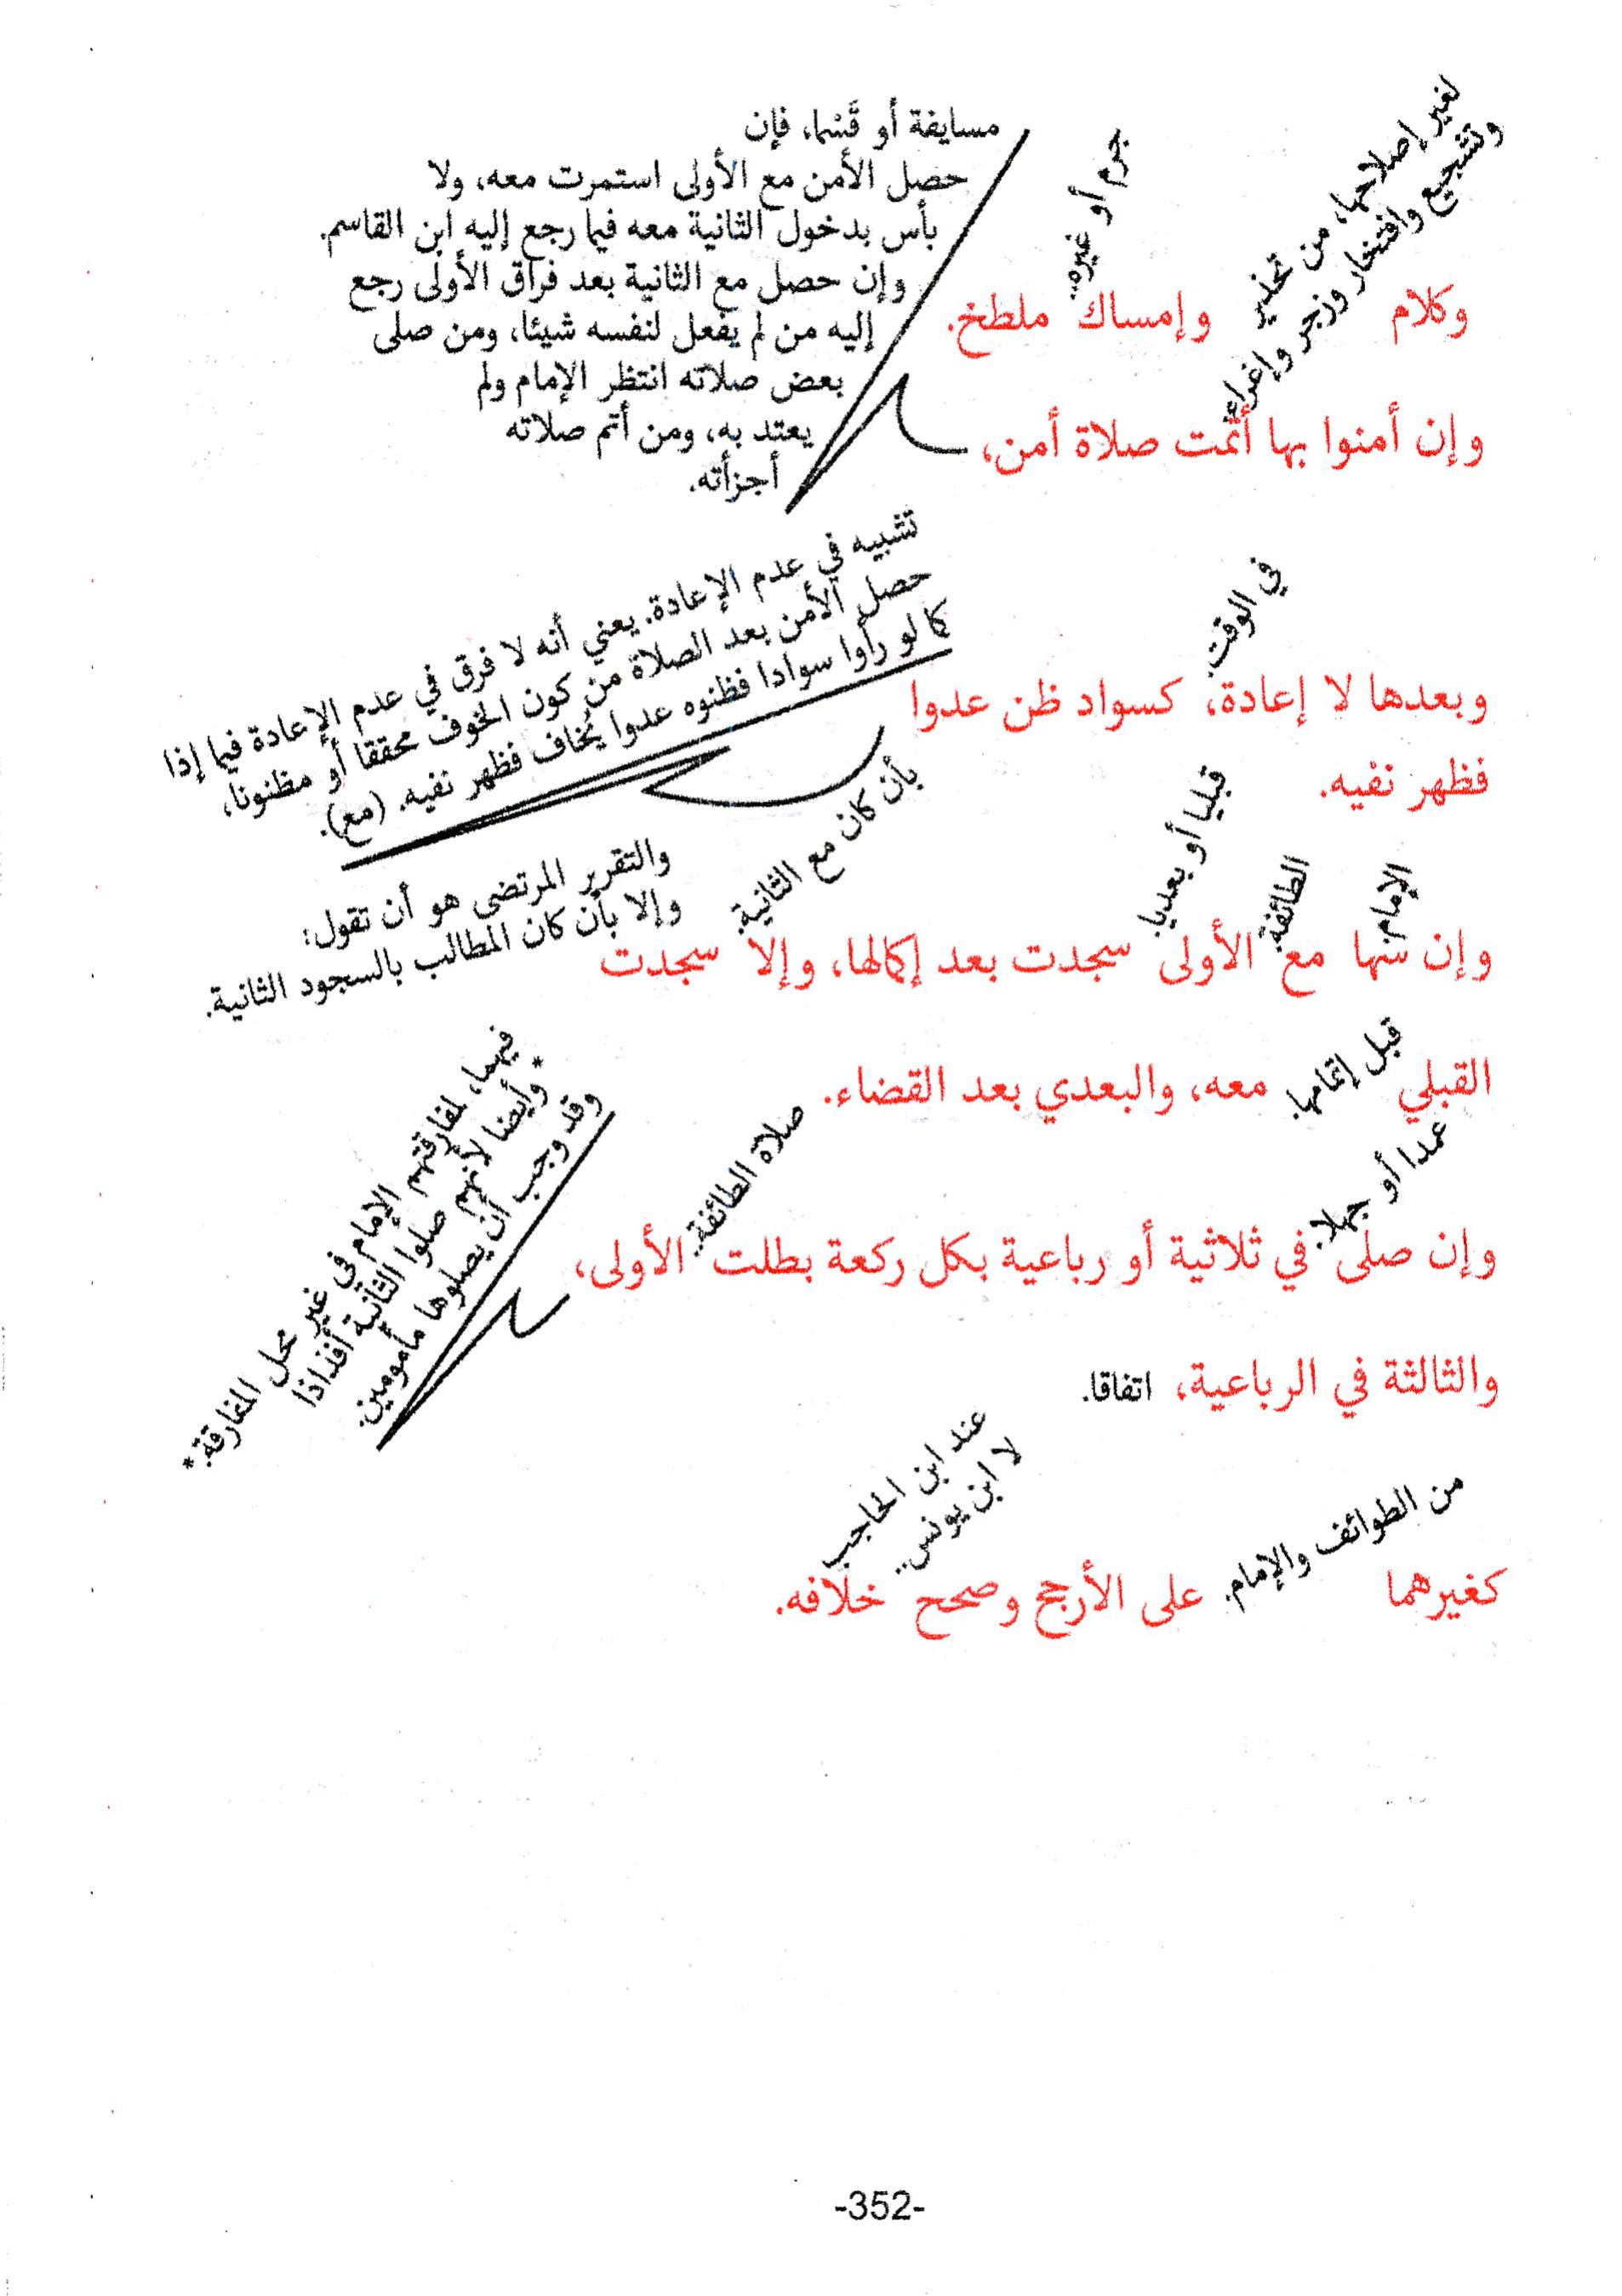 لغير إصلاحها، من تحذير
وتشجيع وافتخار وزجر وإغراء.
جرم أو غيره..
وكلام وإمساك ملطخ.
مسايفة أو قسْما، فإن
حصل الأمن مع الأولى استمرت معه، ولا
بأس بدخول الثانية معه فيما رجع إليه ابن القاسم.
وإن حصل مع الثانية بعد فراق الأولى رجع
إليه من لم يفعل لنفسه شيئا، ومن صلى
بعض صلاته انتظر الإمام ولم
يعتد به، ومن أتم صلاته
أجزأته.
وإن أمنوا بها أتمت صلاة أمن،
في الوقت.
وبعدها لا إعادة، كسواد ظن عدوا
تشبيه في عدم الإعادة. يعني أنه لا فرق في عدم الإعادة فيما إذا
حصل الأمن بعد الصلاة من كون الخوف محققا أو مظنونا،
كما لو رأوا سوادا فظنوه عدوا يُخاف فظهر نفيه. (مع).
فظهر نفيه.
الإمام
الطائفة.
قبليا أو بعديا.
بأن كان مع الثانية.
والتقرير المرتضى هو أن تقول:
وإلا بأن كان المطالب بالسجود الثانية.
وإن سها مع الأولى سجدت بعد إكمالها، وإلا سجدت
قبل إتمامها.
القبلي معه، والبعدي بعد القضاء.
عمدا أو جهلا.
صلاة الطائفة..
وإن صلى في ثلاثية أو رباعية بكل ركعة بطلت الأولى،
فيهما، لمفارقتهم الإمام في غير محل المفارقة.*
* وأيضا لأنهم صلوا الثانية أفذاذا
وقد وجب أن يصلوها مأمومين.
والثالثة في الرباعية، اتفاقا.
من الطوائف والإمام.
عند ابن الحاجب
لا ابن يونس..
كغيرهما على الأرجح وصحح خلافه.
-352-